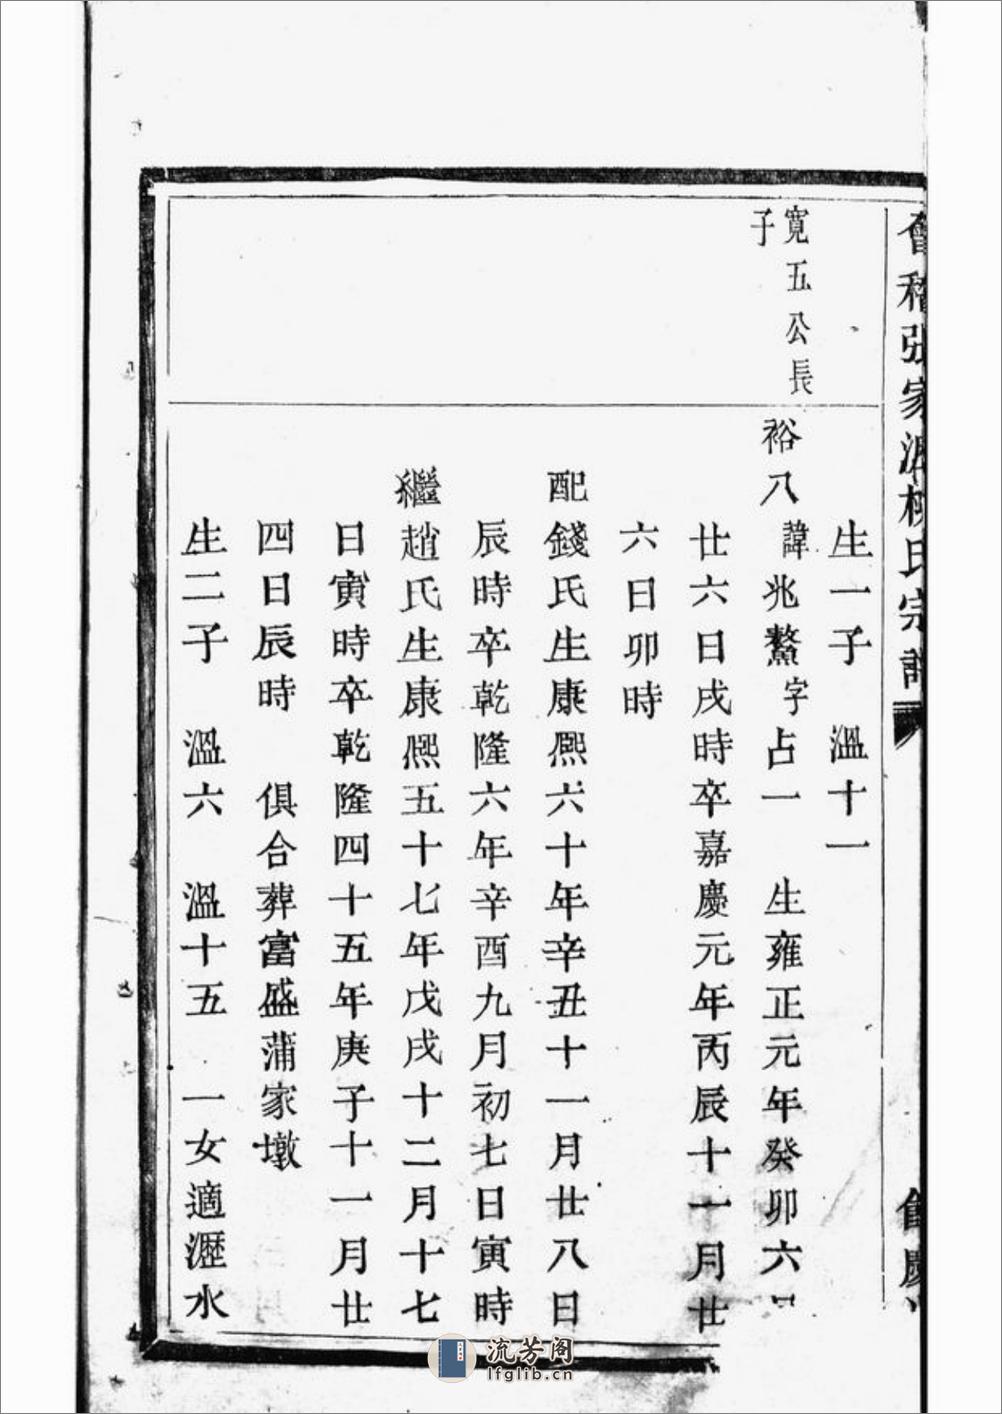 會稽張家漊柳氏宗譜
生一子 溫十一
寬五公長
子
裕八諱兆鰲字占一 生雍正元年癸卯六
廿六日戌時卒嘉慶元年丙辰十一月廿
六日卯時
配錢氏生康熙六十年辛丑十一月廿八日
辰時卒乾隆六年辛酉九月初七日寅時
繼趙氏生康熙五十七年戊戌十二月十七
日寅時卒乾隆四十五年庚子十一月廿
四日辰時 俱合葬富盛蒲家墩
生二子 溫六 溫十五 一女適瀝水
流芳阁
lfglib.cn